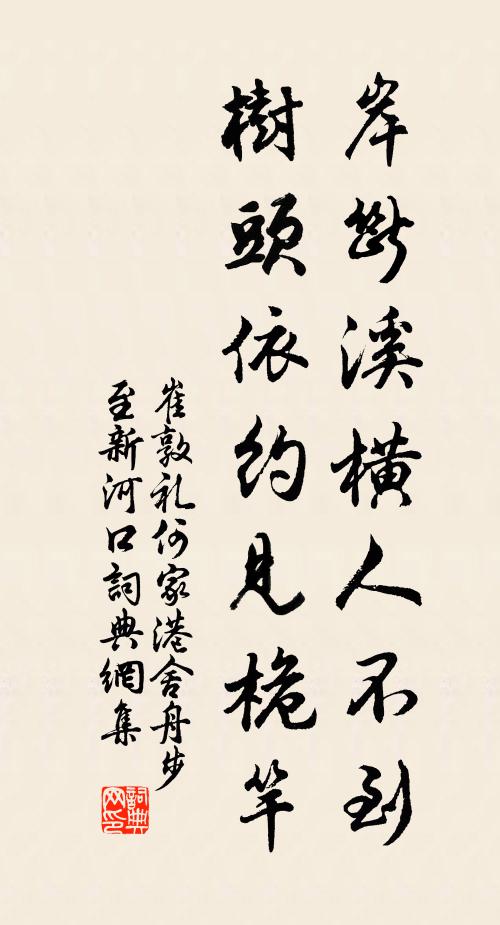 岸断溪橫人不到
樹頭依約見桅竿
崔敦礼何家港舍舟步
至新河口詞典網集
詞典网印